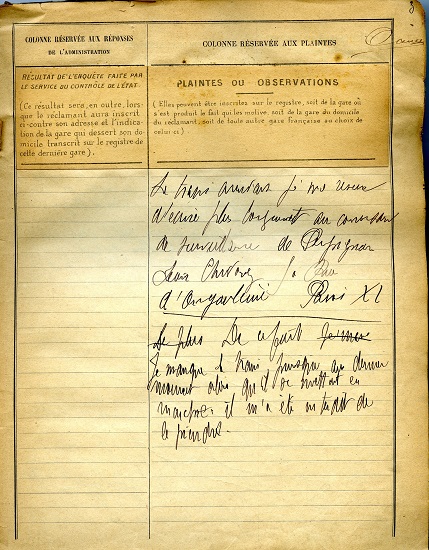 8
COLONNE RÉSERVÉE AUX RÉPONSES
DE L'ADMINISTRATION
RÉSULTAT DE L'ENQUÊTE FAITE PAR
LE SERVICE DU CONTRÔLE DE L'ÉTAT.
(Ce résultat sera, en outre, lors-
que le réclamant aura inscrit
ci-contre son adresse et l'indica-
tion de la gare qui dessert son do-
micile transcrit sur le registre de
cette dernière gare).
COLONNE RÉSERVÉE AUX PLAINTES
PLAINTES OU OBSERVATIONS
(Elles peuvent être inscrites sur le registre, soit de la gare où
s'est produit le fait qui les motive, soit de la gare du domicile
du réclamant, soit de toute autre gare française au choix de
celui ci)
Le train arrivant je me
d'écrire plus longuement au
de surveillance de Perpignan
Paris XI
De plus De ce fait
Je manque le train puisque au dernier
moment alors qu'il se mettait en
marche il m'a été interdit de
le prendre.